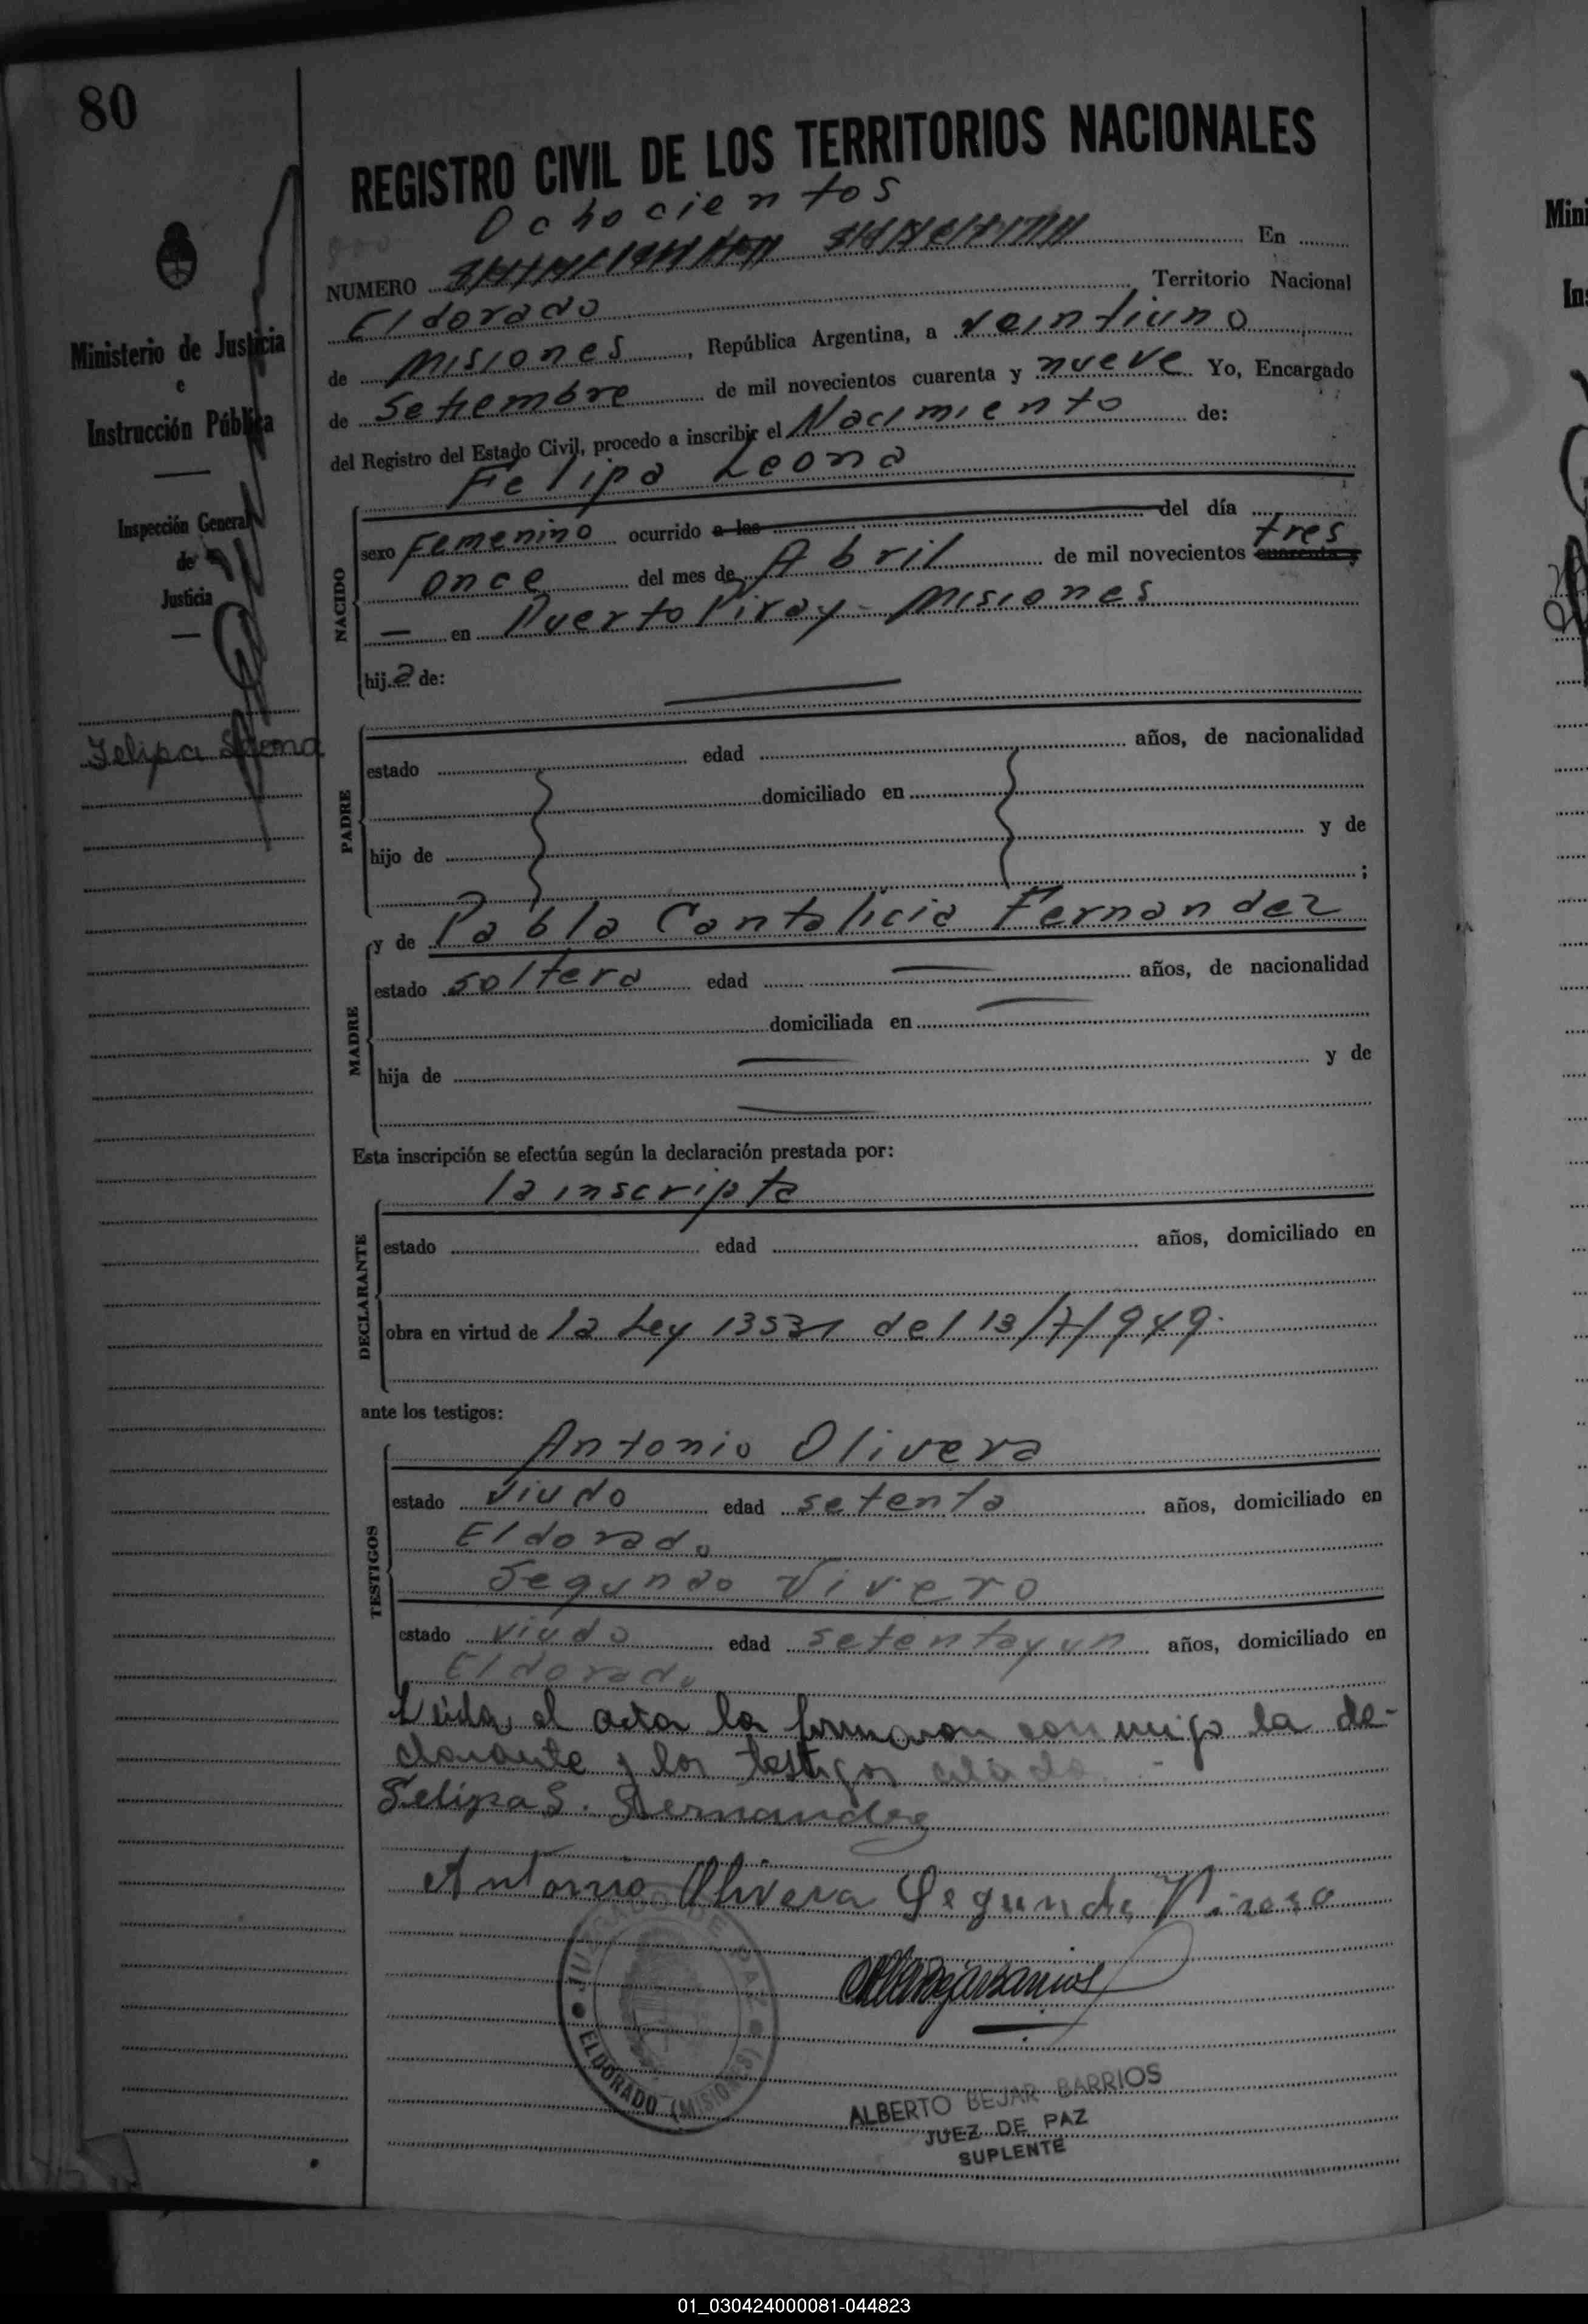 80
Ministerio de Justicia
e
Instrucción Pública
Inspección General
de
Justicia
Felipa
REGISTRO CIVIL DE LOS TERRITORIOS NACIONALES
Ochocientos
NUMERO En
Eldorado Territorio Nacional
de Misiones, República Argentina, a veintiuno
de Setiembre de mil novecientos cuarenta y nueve Yo, Encargado
del Registro del Estado Civil, procedo a inscribir el Nacimiento de:
Felipa Leona
NACIDO
sexo Femenino ocurrido a las del día
once del mes de Abril de mil novecientos cuarenta y tres
— en Puerto Piray - Misiones
hija de:
PADRE
estado edad años, de nacionalidad
domiciliado en
hijo de y de
;
y de Pabla Cantalicia Fernandez
MADRE
estado soltera edad años, de nacionalidad
domiciliada en
hija de y de
Esta inscripción se efectúa según la declaración prestada por:
la inscripta
DECLARANTE
estado edad años, domiciliado en
obra en virtud de la Ley del 13/7/949.
ante los testigos:
Antonio Olivera
TESTIGOS
estado viudo edad setenta años, domiciliado en
Eldorado
Segundo Vivero
estado viudo edad setentayun años, domiciliado en
Eldorado
Leída el acta la firmaron conmigo la de-
clarante y los testigos citado
Felipa L. Fernandez
Antonio Olivera Segundo Vivero
JUZGADO DE PAZ
ELDORADO (MISIONES)
ALBERTO BEJAR BARRIOS
JUEZ DE PAZ
SUPLENTE
Mini
Ins
01_030424000081-044823